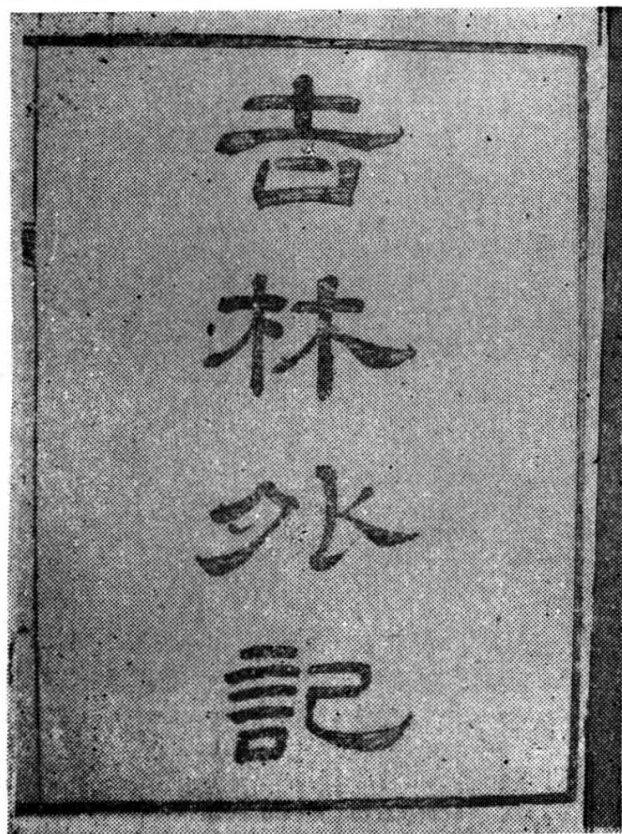 吉林外記